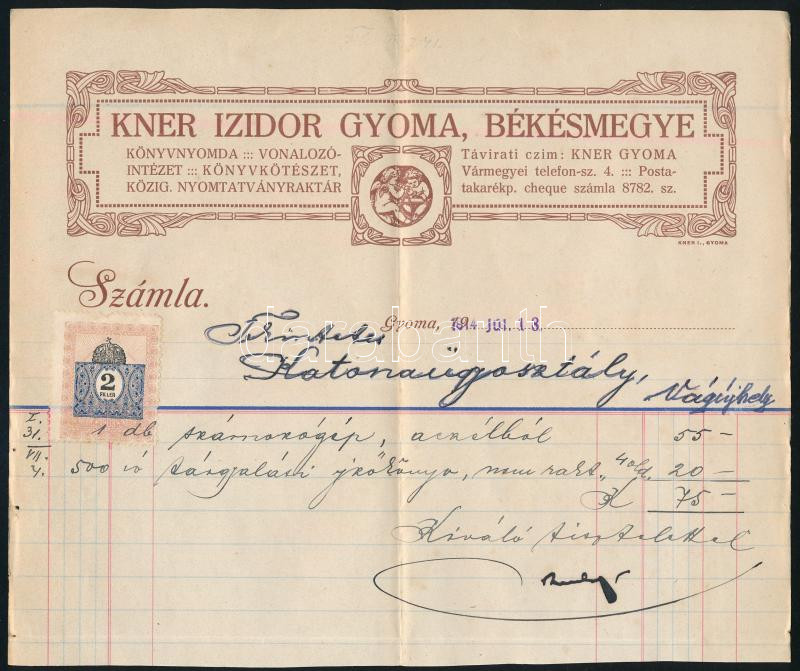 KNER IZIDOR GYOMA, BÉKÉSMEGYE
KÖNYVNYOMDA ::: VONALOZÓ-
INTÉZET ::: KÖNYVKÖTÉSZET,
KÖZIG. NYOMTATVÁNYRAKTÁR
Távirati czim: KNER GYOMA
Vármegyei telefon-sz. 4. ::: Posta-
takarékp. cheque számla 8782. sz.
KNER I., GYOMA
Számla.
Gyoma, 1914 JÚL. 13.
Tekintetes
Katonaügyosztály,
Vágújhely
2
FILLÉR
I.
31. 1 db számozógép, aczélból 55 –
VII.
4. 500 ív tárgyalási jkőkönyv, nem rakt. 40 fl. 20 –
K 75 –
Kiváló tisztelettel
darabanth